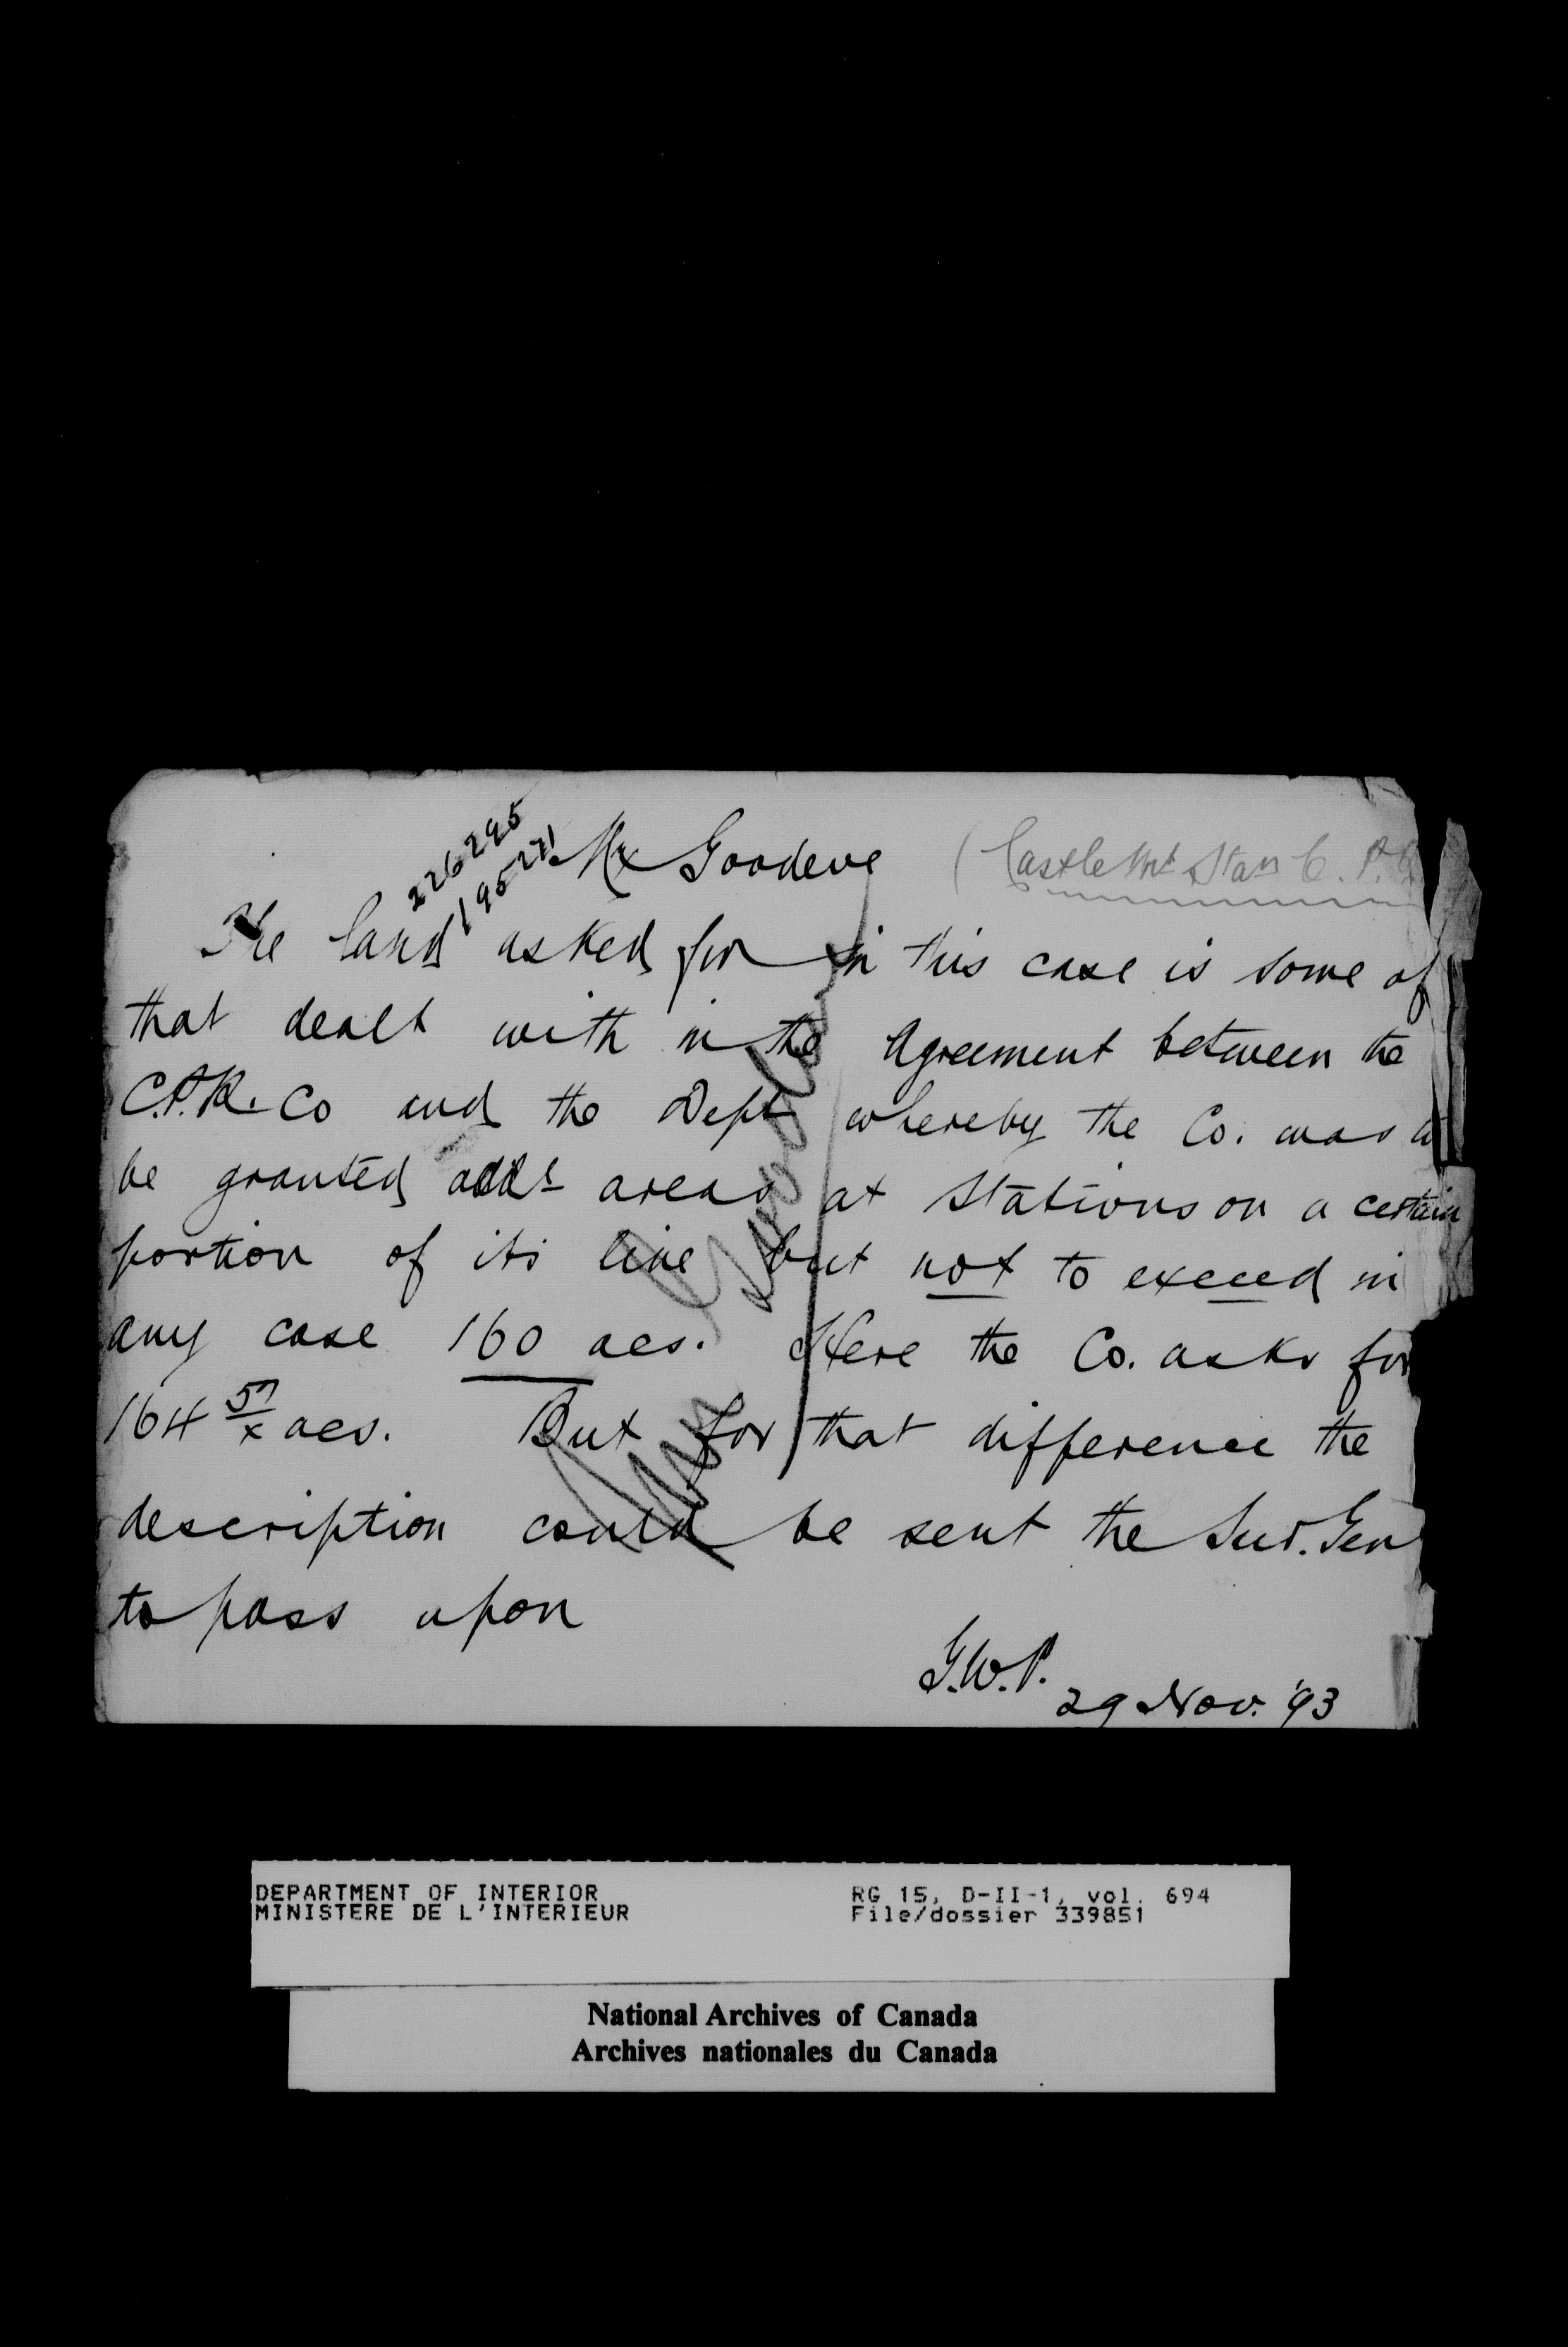 226295
195271
Mr Goodeve
(Castle Mt Stan C.P.R.
The land asked for in this case is some of
that dealt with in the Agreement between the
C.P.R. Co and the Dept whereby the Co. was to
be granted addl areas at Stations on a certain
portion of its line but not to exceed in
any case 160 acs. Here the Co. asks for
164 57/x acs. But for that difference the
description could be sent the Sur. Gen
to pass upon
G.W.P.
29 Nov. '93
DEPARTMENT OF INTERIOR
MINISTERE DE L'INTERIEUR
RG 15, D-II-1, vol. 694
File/dossier 339851
National Archives of Canada
Archives nationales du Canada